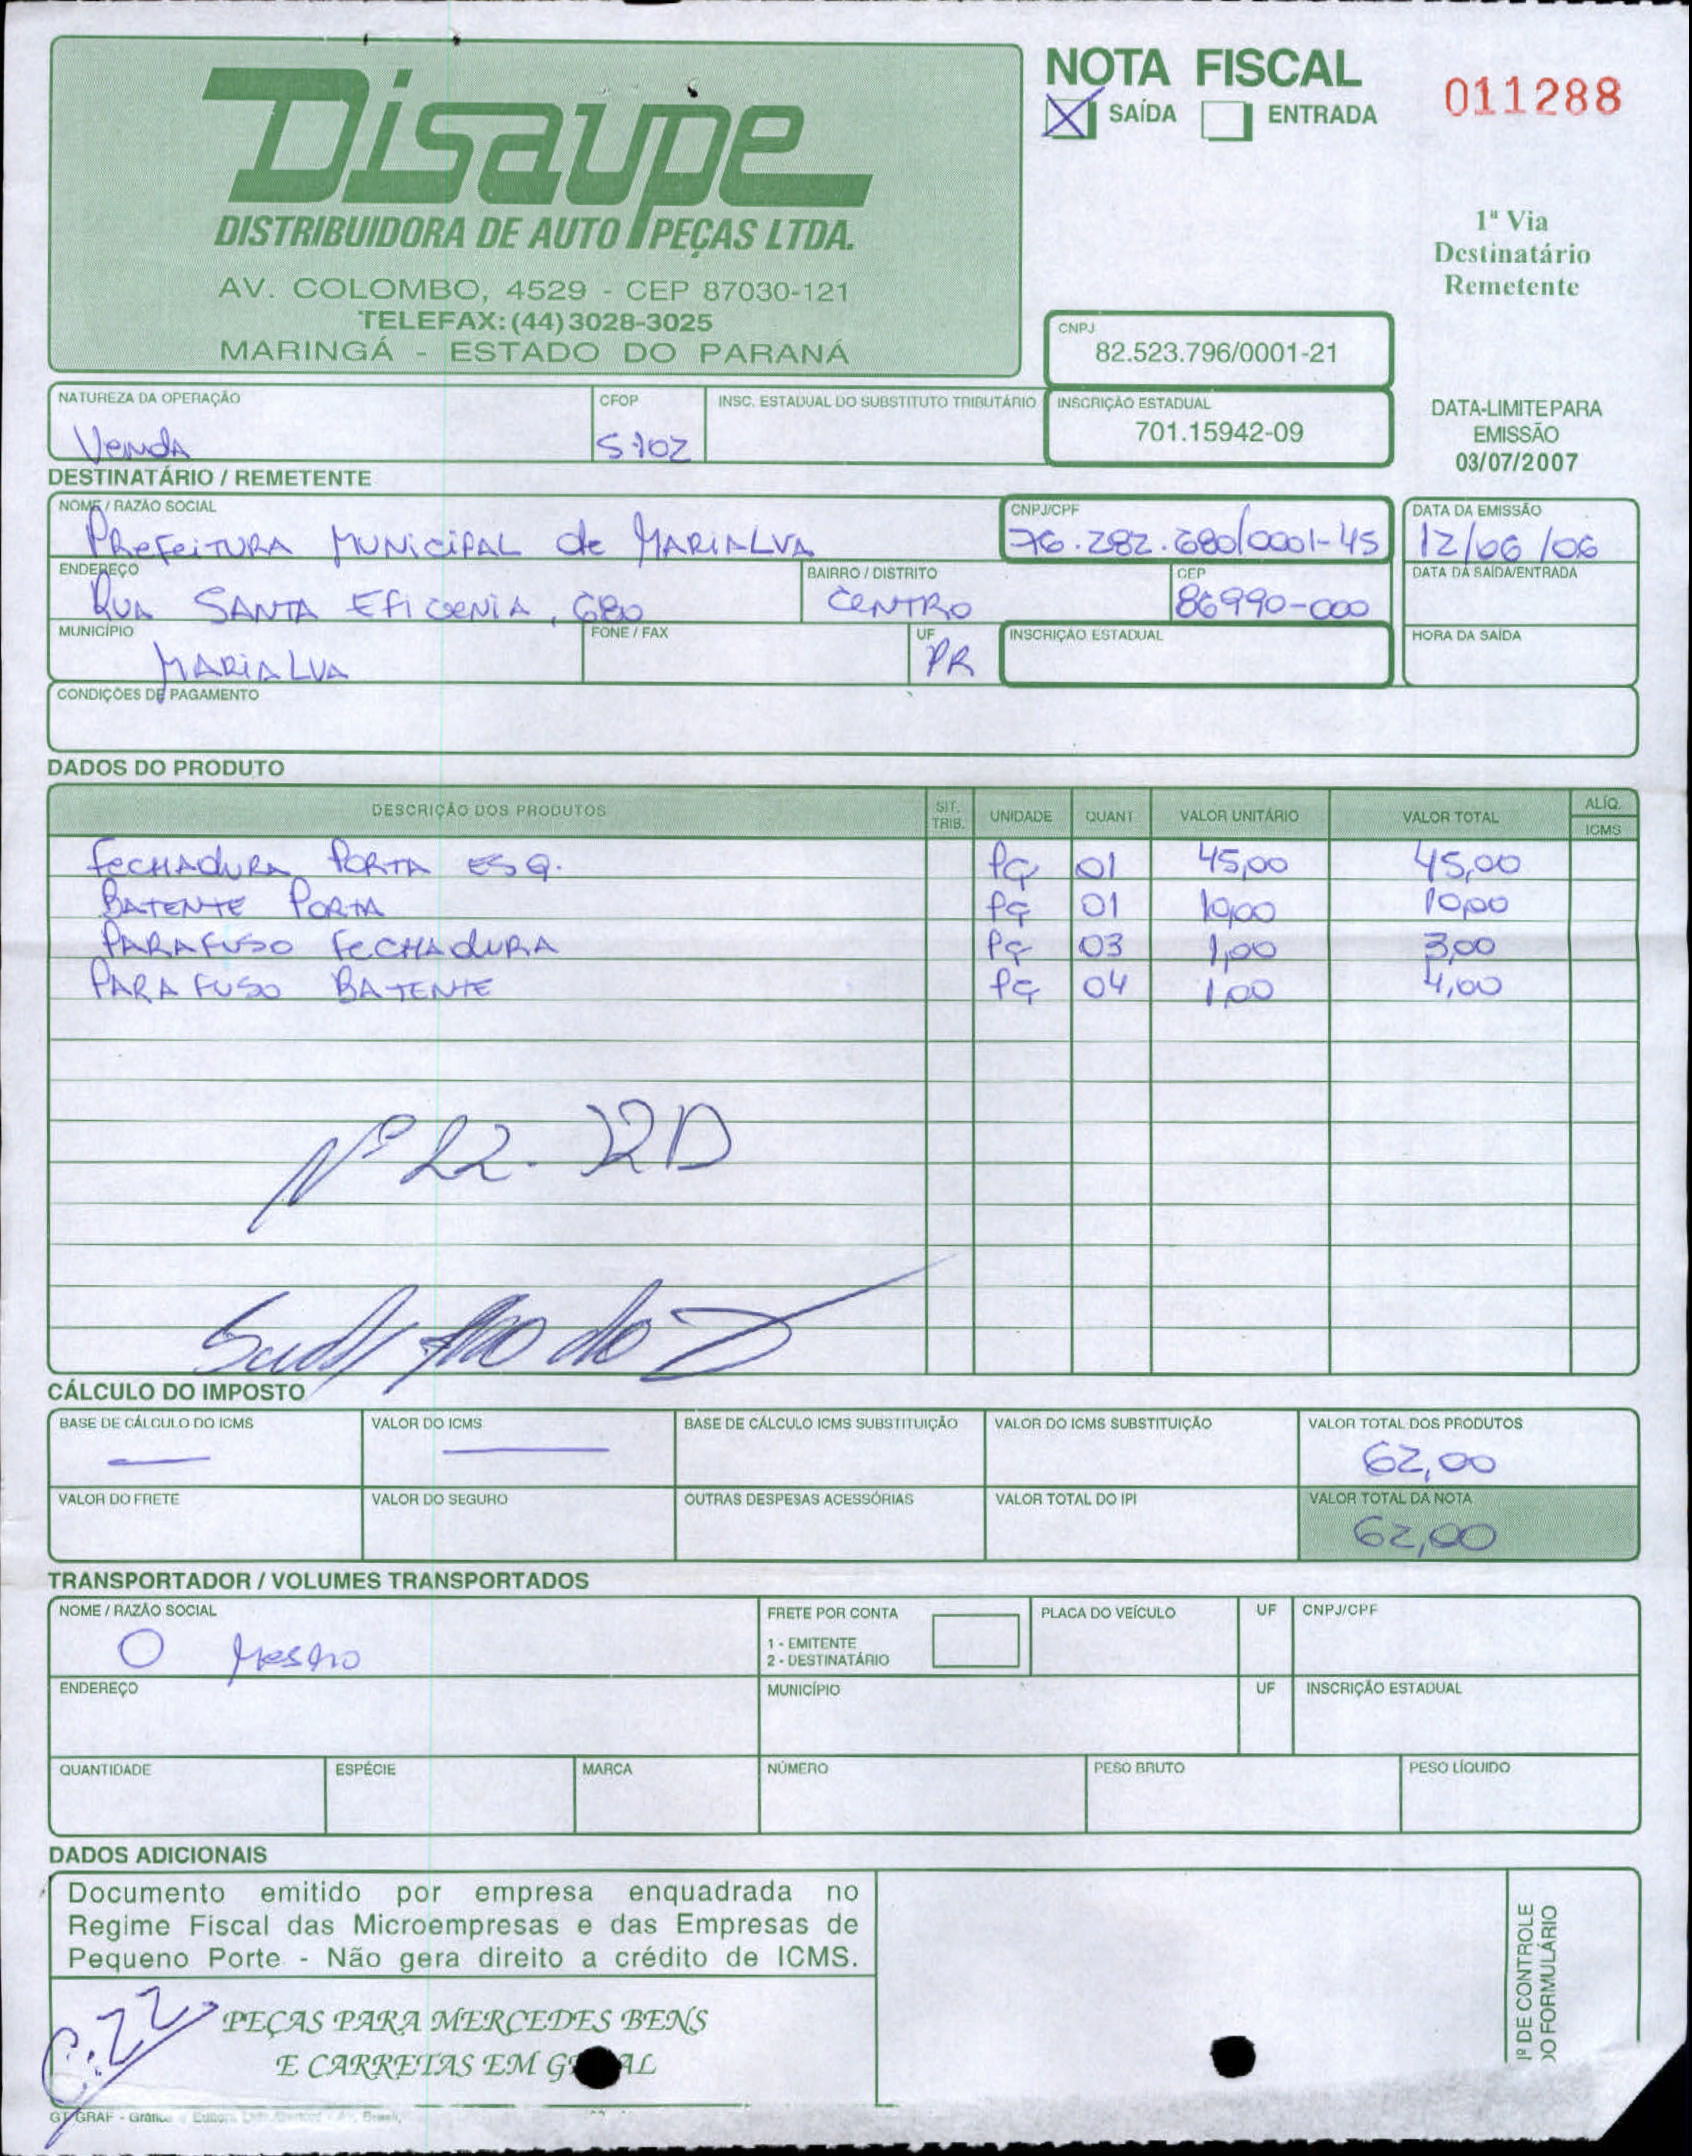 Disaupe
DISTRIBUIDORA DE AUTO PEÇAS LTDA.
AV. COLOMBO, 4529 - CEP 87030-121
TELEFAX: (44) 3028-3025
MARINGÁ - ESTADO DO PARANÁ
NOTA FISCAL
X SAÍDA ENTRADA
011288
1ª Via
Destinatário
Remetente
CNPJ
82.523.796/0001-21
NATUREZA DA OPERAÇÃO CFOP INSC. ESTADUAL DO SUBSTITUTO TRIBUTÁRIO INSCRIÇÃO ESTADUAL
Venda 5.102 701.15942-09
DATA-LIMITE PARA
EMISSÃO
03/07/2007
DESTINATÁRIO / REMETENTE
NOME / RAZÃO SOCIAL CNPJ/CPF DATA DA EMISSÃO
Prefeitura Municipal de Marialva 76.282.680/0001-45 12/06/06
ENDEREÇO BAIRRO / DISTRITO CEP DATA DA SAÍDA/ENTRADA
Rua Santa Efigenia, 680 Centro 86990-000
MUNICÍPIO FONE / FAX UF INSCRIÇÃO ESTADUAL HORA DA SAÍDA
Marialva PR
CONDIÇÕES DE PAGAMENTO
DADOS DO PRODUTO
DESCRIÇÃO DOS PRODUTOS SIT. TRIB. UNIDADE QUANT VALOR UNITÁRIO VALOR TOTAL ALÍQ. ICMS
Fechadura Porta Esq. Pç 01 45,00 45,00
Batente Porta Pç 01 10,00 10,00
Parafuso Fechadura Pç 03 1,00 3,00
Parafuso Batente Pç 04 1,00 4,00
Nº 22.
CÁLCULO DO IMPOSTO
BASE DE CÁLCULO DO ICMS VALOR DO ICMS BASE DE CÁLCULO ICMS SUBSTITUIÇÃO VALOR DO ICMS SUBSTITUIÇÃO VALOR TOTAL DOS PRODUTOS
62,00
VALOR DO FRETE VALOR DO SEGURO OUTRAS DESPESAS ACESSÓRIAS VALOR TOTAL DO IPI VALOR TOTAL DA NOTA
62,00
TRANSPORTADOR / VOLUMES TRANSPORTADOS
NOME / RAZÃO SOCIAL FRETE POR CONTA PLACA DO VEÍCULO UF CNPJ/CPF
O Mesmo
1 - EMITENTE
2 - DESTINATÁRIO
ENDEREÇO MUNICÍPIO UF INSCRIÇÃO ESTADUAL
QUANTIDADE ESPÉCIE MARCA NÚMERO PESO BRUTO PESO LÍQUIDO
DADOS ADICIONAIS
Documento emitido por empresa enquadrada no
Regime Fiscal das Microempresas e das Empresas de
Pequeno Porte - Não gera direito a crédito de ICMS.
PEÇAS PARA MERCEDES BENS
E CARRETAS EM
C:22
DE CONTROLE
DO FORMULÁRIO
GT GRAF - Gráfica e Editora